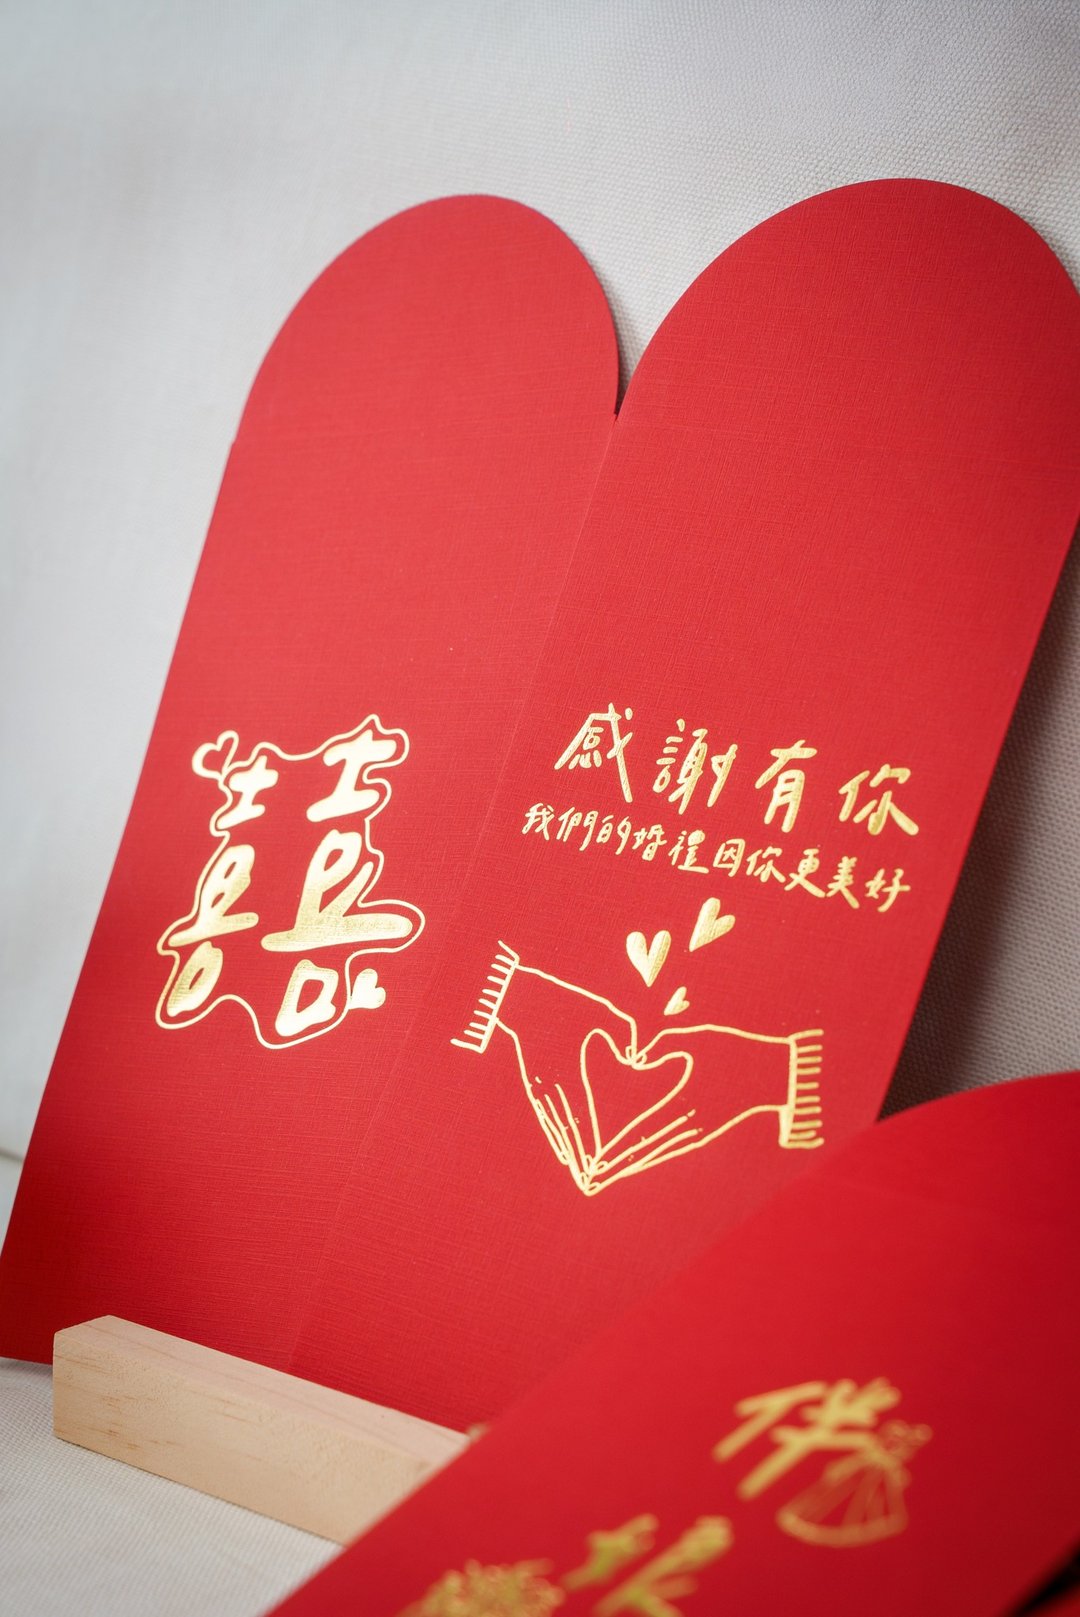 囍
感謝有你
我們的婚禮因你更美好